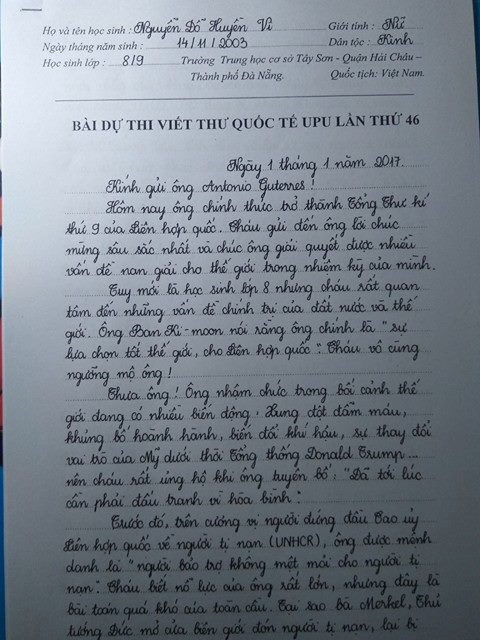 Họ và tên học sinh : Nguyễn Đỗ Huyền Vi Giới tính : Nữ
Ngày tháng năm sinh : 14/11/2003 Dân tộc : Kinh
Học sinh lớp : 8/9 Trường Trung học cơ sở Tây Sơn - Quận Hải Châu –
Thành phố Đà Nẵng. Quốc tịch: Việt Nam.
BÀI DỰ THI VIẾT THƯ QUỐC TẾ UPU LẦN THỨ 46
Ngày 1 tháng 1 năm 2017.
Kính gửi ông Antonio Guterres !
Hôm nay ông chính thức trở thành Tổng Thư kí
thứ 9 của Liên hợp quốc. Cháu gửi đến ông lời chúc
mừng sâu sắc nhất và chúc ông giải quyết được nhiều
vấn đề nan giải cho thế giới trong nhiệm kỳ của mình.
Tuy mới là học sinh lớp 8 nhưng cháu rất quan
tâm đến những vấn đề chính trị của đất nước và thế
giới. Ông Ban Ki-moon nói rằng ông chính là "sự
lựa chọn tốt thế giới, cho Liên hợp quốc". Cháu vô cùng
ngưỡng mộ ông !
Thưa ông ! Ông nhậm chức trong bối cảnh thế
giới đang có nhiều biến động : Xung đột đẫm máu,
khủng bố hoành hành, biến đổi khí hậu, sự thay đổi
vai trò của Mỹ dưới thời Tổng thống Donald Trump...
nên cháu rất ủng hộ khi ông tuyên bố: "Đã tới lúc
cần phải đấu tranh vì hòa bình".
Trước đó, trên cương vị người đứng đầu Cao ủy
Liên hợp quốc về người tị nạn (UNHCR), ông được mệnh
danh là "người bảo trợ không mệt mỏi cho người tị
nạn". Cháu biết nỗ lực của ông rất lớn, nhưng đây là
bài toán quá khó của toàn cầu. Tại sao bà Merkel, Thủ
tướng Đức mở cửa biên giới đón người tị nạn, lại bị